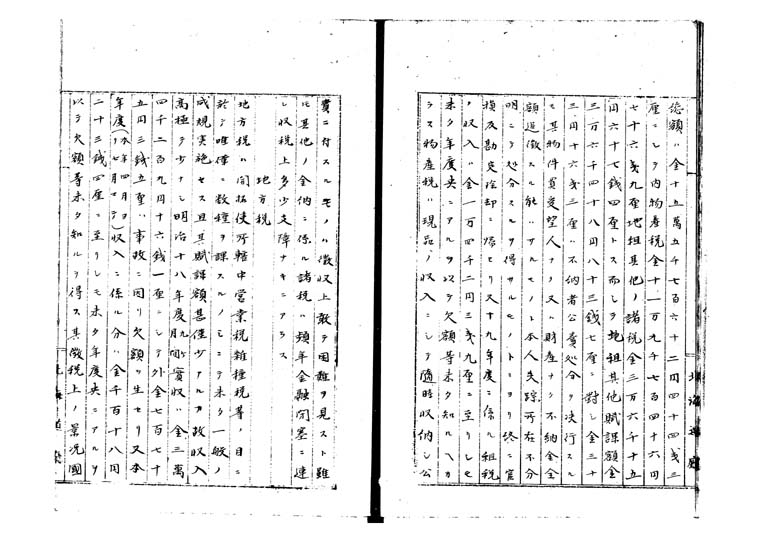 總額ハ金十五萬五千七百六十二円四十四戋三
厘ニシテ内物産税金十一万九千七百四十六円
七十六戋九厘地租其他ノ諸税金三万六千十五
円六十七銭四厘トス而シテ地租其他賦課額金
三万六千四十八円八十三銭七厘ニ對シ金三十
三円十六戋三厘ハ不納者公賣処分ヲ决行スル
モ其物件買受望人ナク又ハ財産ナク不納金全
額追徴スル能ハサルモノト本人失踪所在不分
明ニシテ処分スルヲ得サルモノトヨリ終ニ官
損及勘弁除却ニ帰セリ又十九年度ニ係ル租税
ノ収入ハ金一万四千二円三戋九厘ニ至リシモ
未タ年度央ニアルヲ以テ欠額等未タ知ルヘカ
ラス物産税ハ現品ノ収入ニシテ随時収納シ公
賣ニ付スルモノハ徴収上敢テ困難ヲ見スト雖
モ其他ノ金納ニ係ル諸税ハ頻年金融閉塞ニ連
レ収税上多少支障ナキニアラス
地方税
地方税ハ開拓使所轄中営業税雑種税等ノ目ニ
於テ唯僅ニ数種ヲ課スルノミニシテ未タ一般ノ
成規実施セス且其賦課額甚僅少ナルカ故収入
高極テ少ナシ明治十八年度九ヶ月間実収ハ金三萬
四千二百九円十六銭一厘ニシテ外金七百七十
五円三銭五厘ハ事故ニ因リ欠額ヲ生セリ又本
年度(本年四月ヨリ七月マテ)収入ニ係ル分ハ金千百十八円
二十三銭四厘ニ至リシモ未タ年度央ニアルヲ
以テ欠額等未タ知ルヲ得ス其徴税上ノ景况國
北海道廳
北海道廳